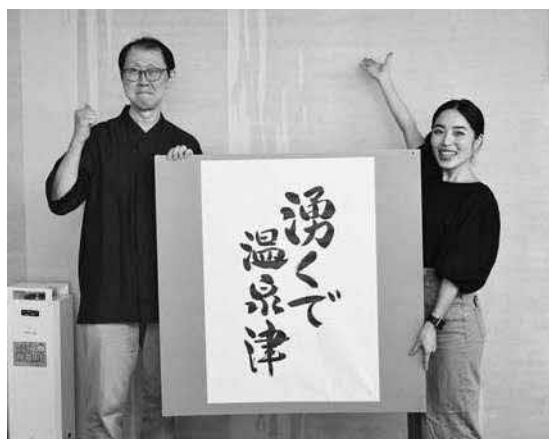 湧くで
温泉津